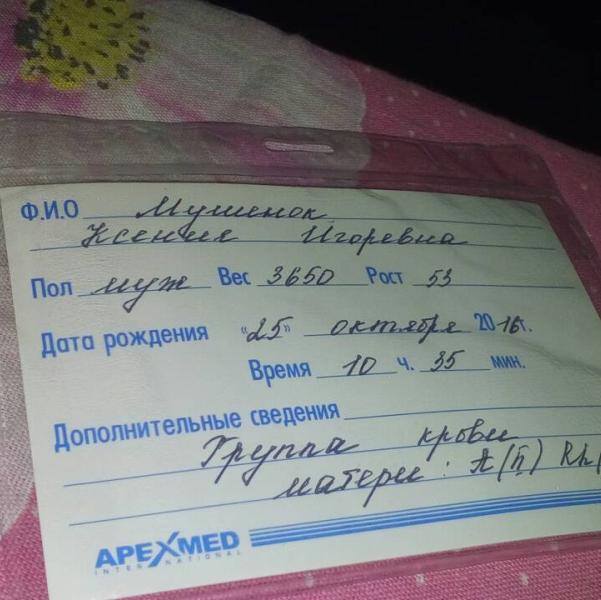 Ф.И.О Мушенок
Ксения Игоревна
Пол муж Вес 3650 Рост 53
Дата рождения «25» октября 2016г.
Время 10 ч. 35 мин.
Дополнительные сведения
Группа крови
матери: A(II) Rh(
APEXMED
INTERNATIONAL